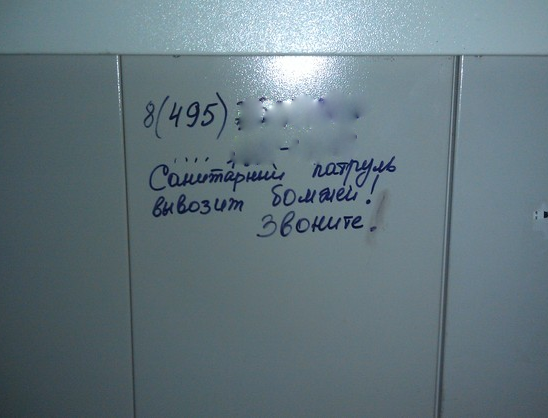 8(495)
Санитарный патруль
вывозит бомжей!
Звоните!